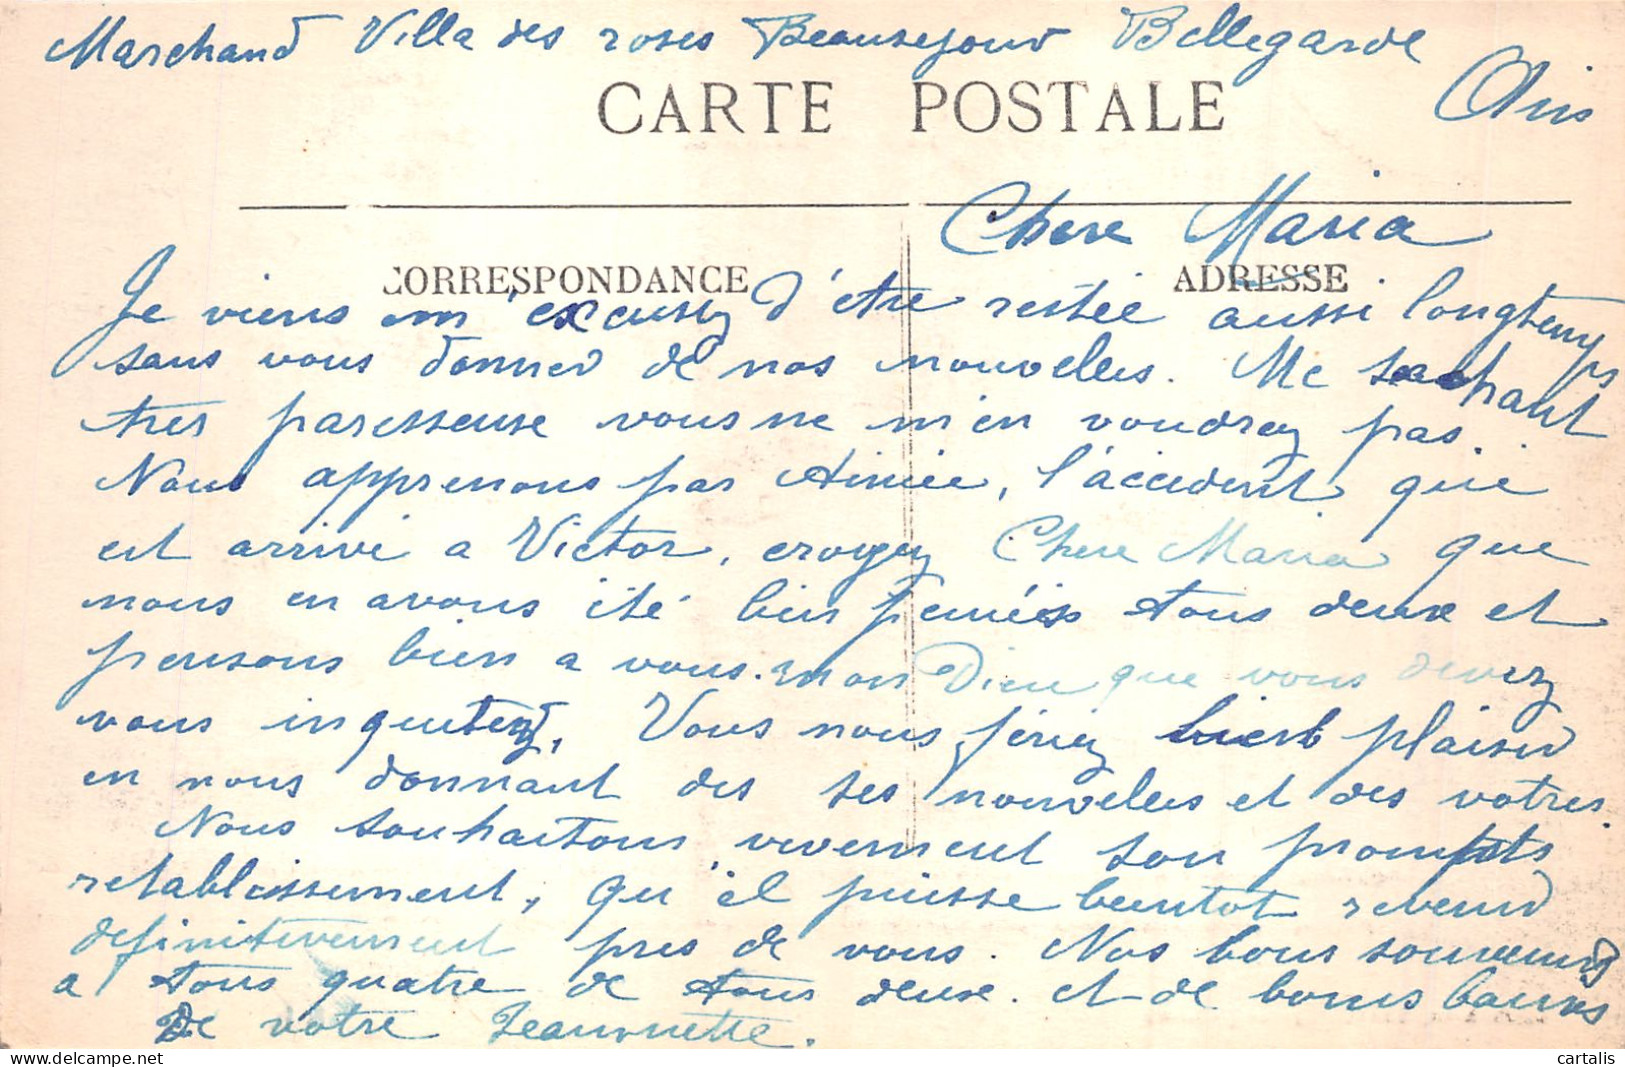 Marchand Villa des roses Beausejour Bellegarde
Ain
CARTE POSTALE
Chere Maria
CORRESPONDANCE
ADRESSE
Je viens m'excusez d'etre restée aussi longtemps
sans vous donner de nos nouvelles. Me sachant
tres paresseuse vous ne m'en voudrez pas.
Nous apprenons par Aimée, l'accident qui
est arrivé a Victor, croyez Chere Maria que
nous en avons été bien peinées tous deux et
pensons bien a vous. mon Dieu que vous devez
vous inquietez, Vous nous feriez bien plaisir
en nous donnant des ses nouvelles et des votres.
Nous souhaitons vivement son prompts
retablissement, qu'il puisse bientot revenir
definitivement pres de vous. Nos bons souvenirs
a tous quatre de tous deux. et de bons baisers
De votre Jeannette.
cartalis